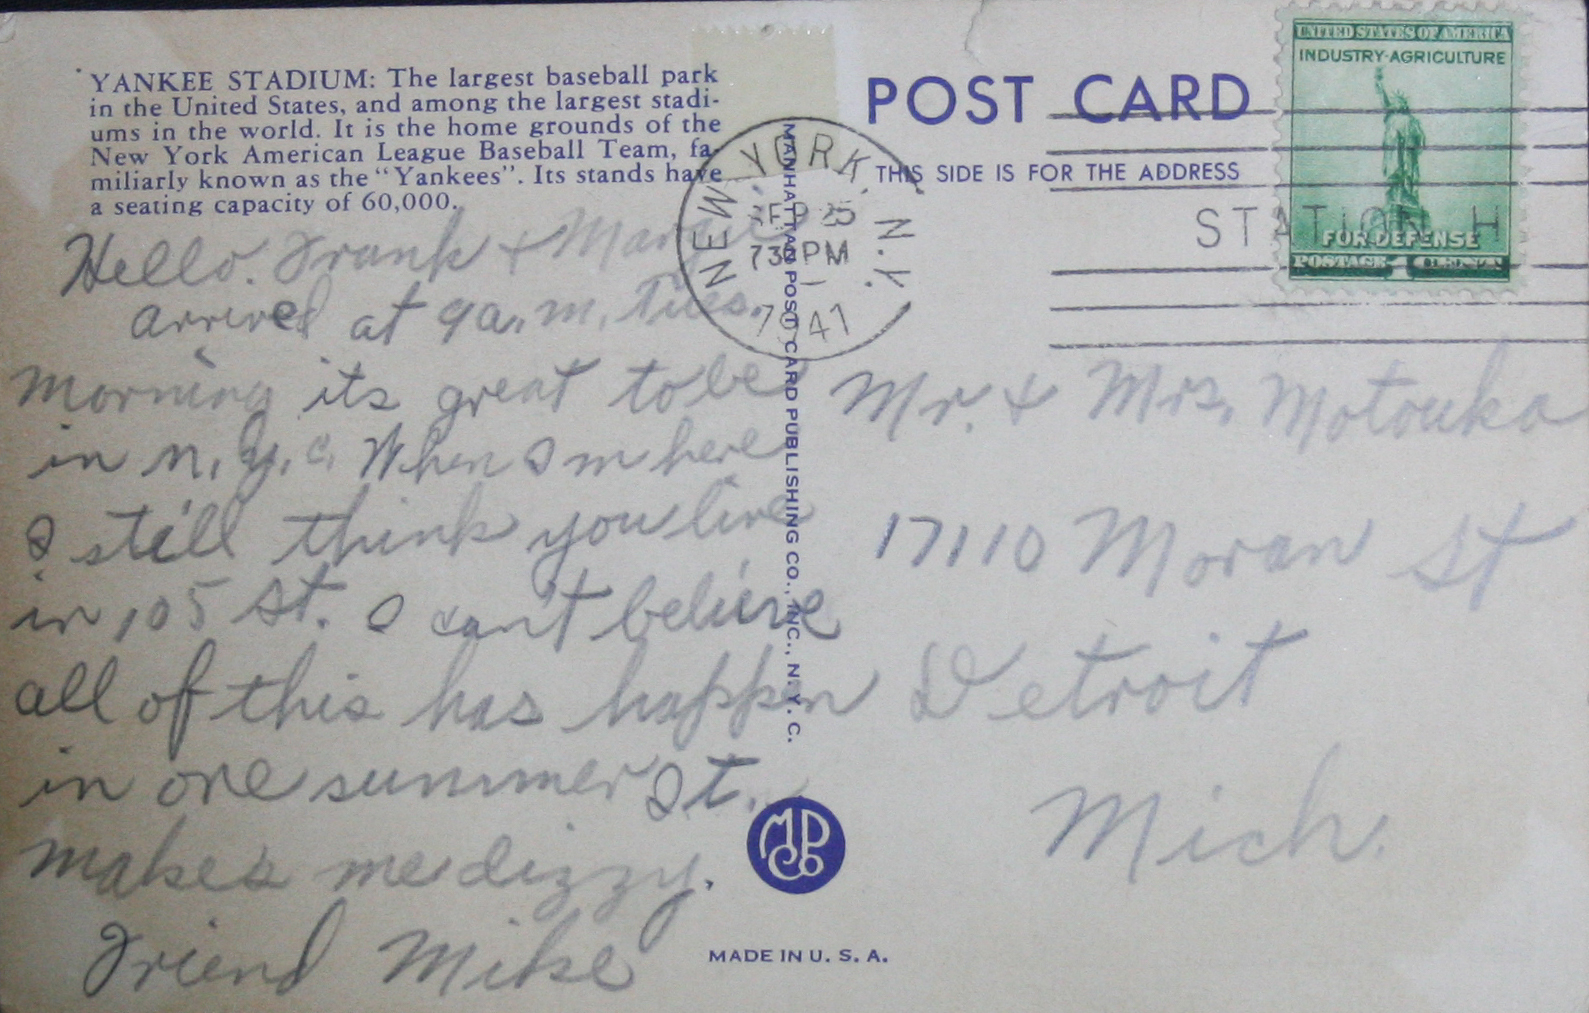 YANKEE STADIUM: The largest baseball park
in the United States, and among the largest stadi-
ums in the world. It is the home grounds of the
New York American League Baseball Team, fa-
miliarly known as the "Yankees". Its stands have
a seating capacity of 60,000.
Hello. Frank + Margie
arrived at 9 a.m. Tues.
morning its great to be
in N.Y.C. When I m here
I still think you live
in 105 St. I can't believe
all of this has happen
in one summer It.
makes me dizzy.
Friend Mike
MANHATTAN POST CARD PUBLISHING CO., INC., N.Y.C.
NEW YORK, N.Y.
SEP 25
730PM
1941
POST CARD
THIS SIDE IS FOR THE ADDRESS
UNITED STATES OF AMERICA
INDUSTRY·AGRICULTURE
FOR DEFENSE
POSTAGE 1 CENT
STATION H
Mr. + Mrs. Motouka
17110 Moran St
Detroit
Mich.
MADE IN U. S. A.